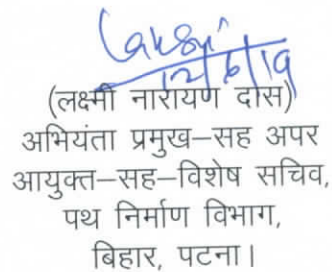 12/6/19
(लक्ष्मी नारायण दास)
अभियंता प्रमुख–सह अपर
आयुक्त–सह–विशेष सचिव,
पथ निर्माण विभाग,
बिहार, पटना।